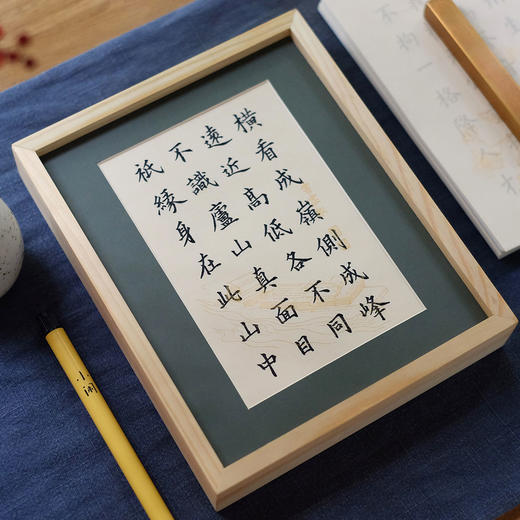 橫看成嶺側成峰
遠近高低各不同
不識廬山真面目
祇緣身在此山中
不拘一格降人才